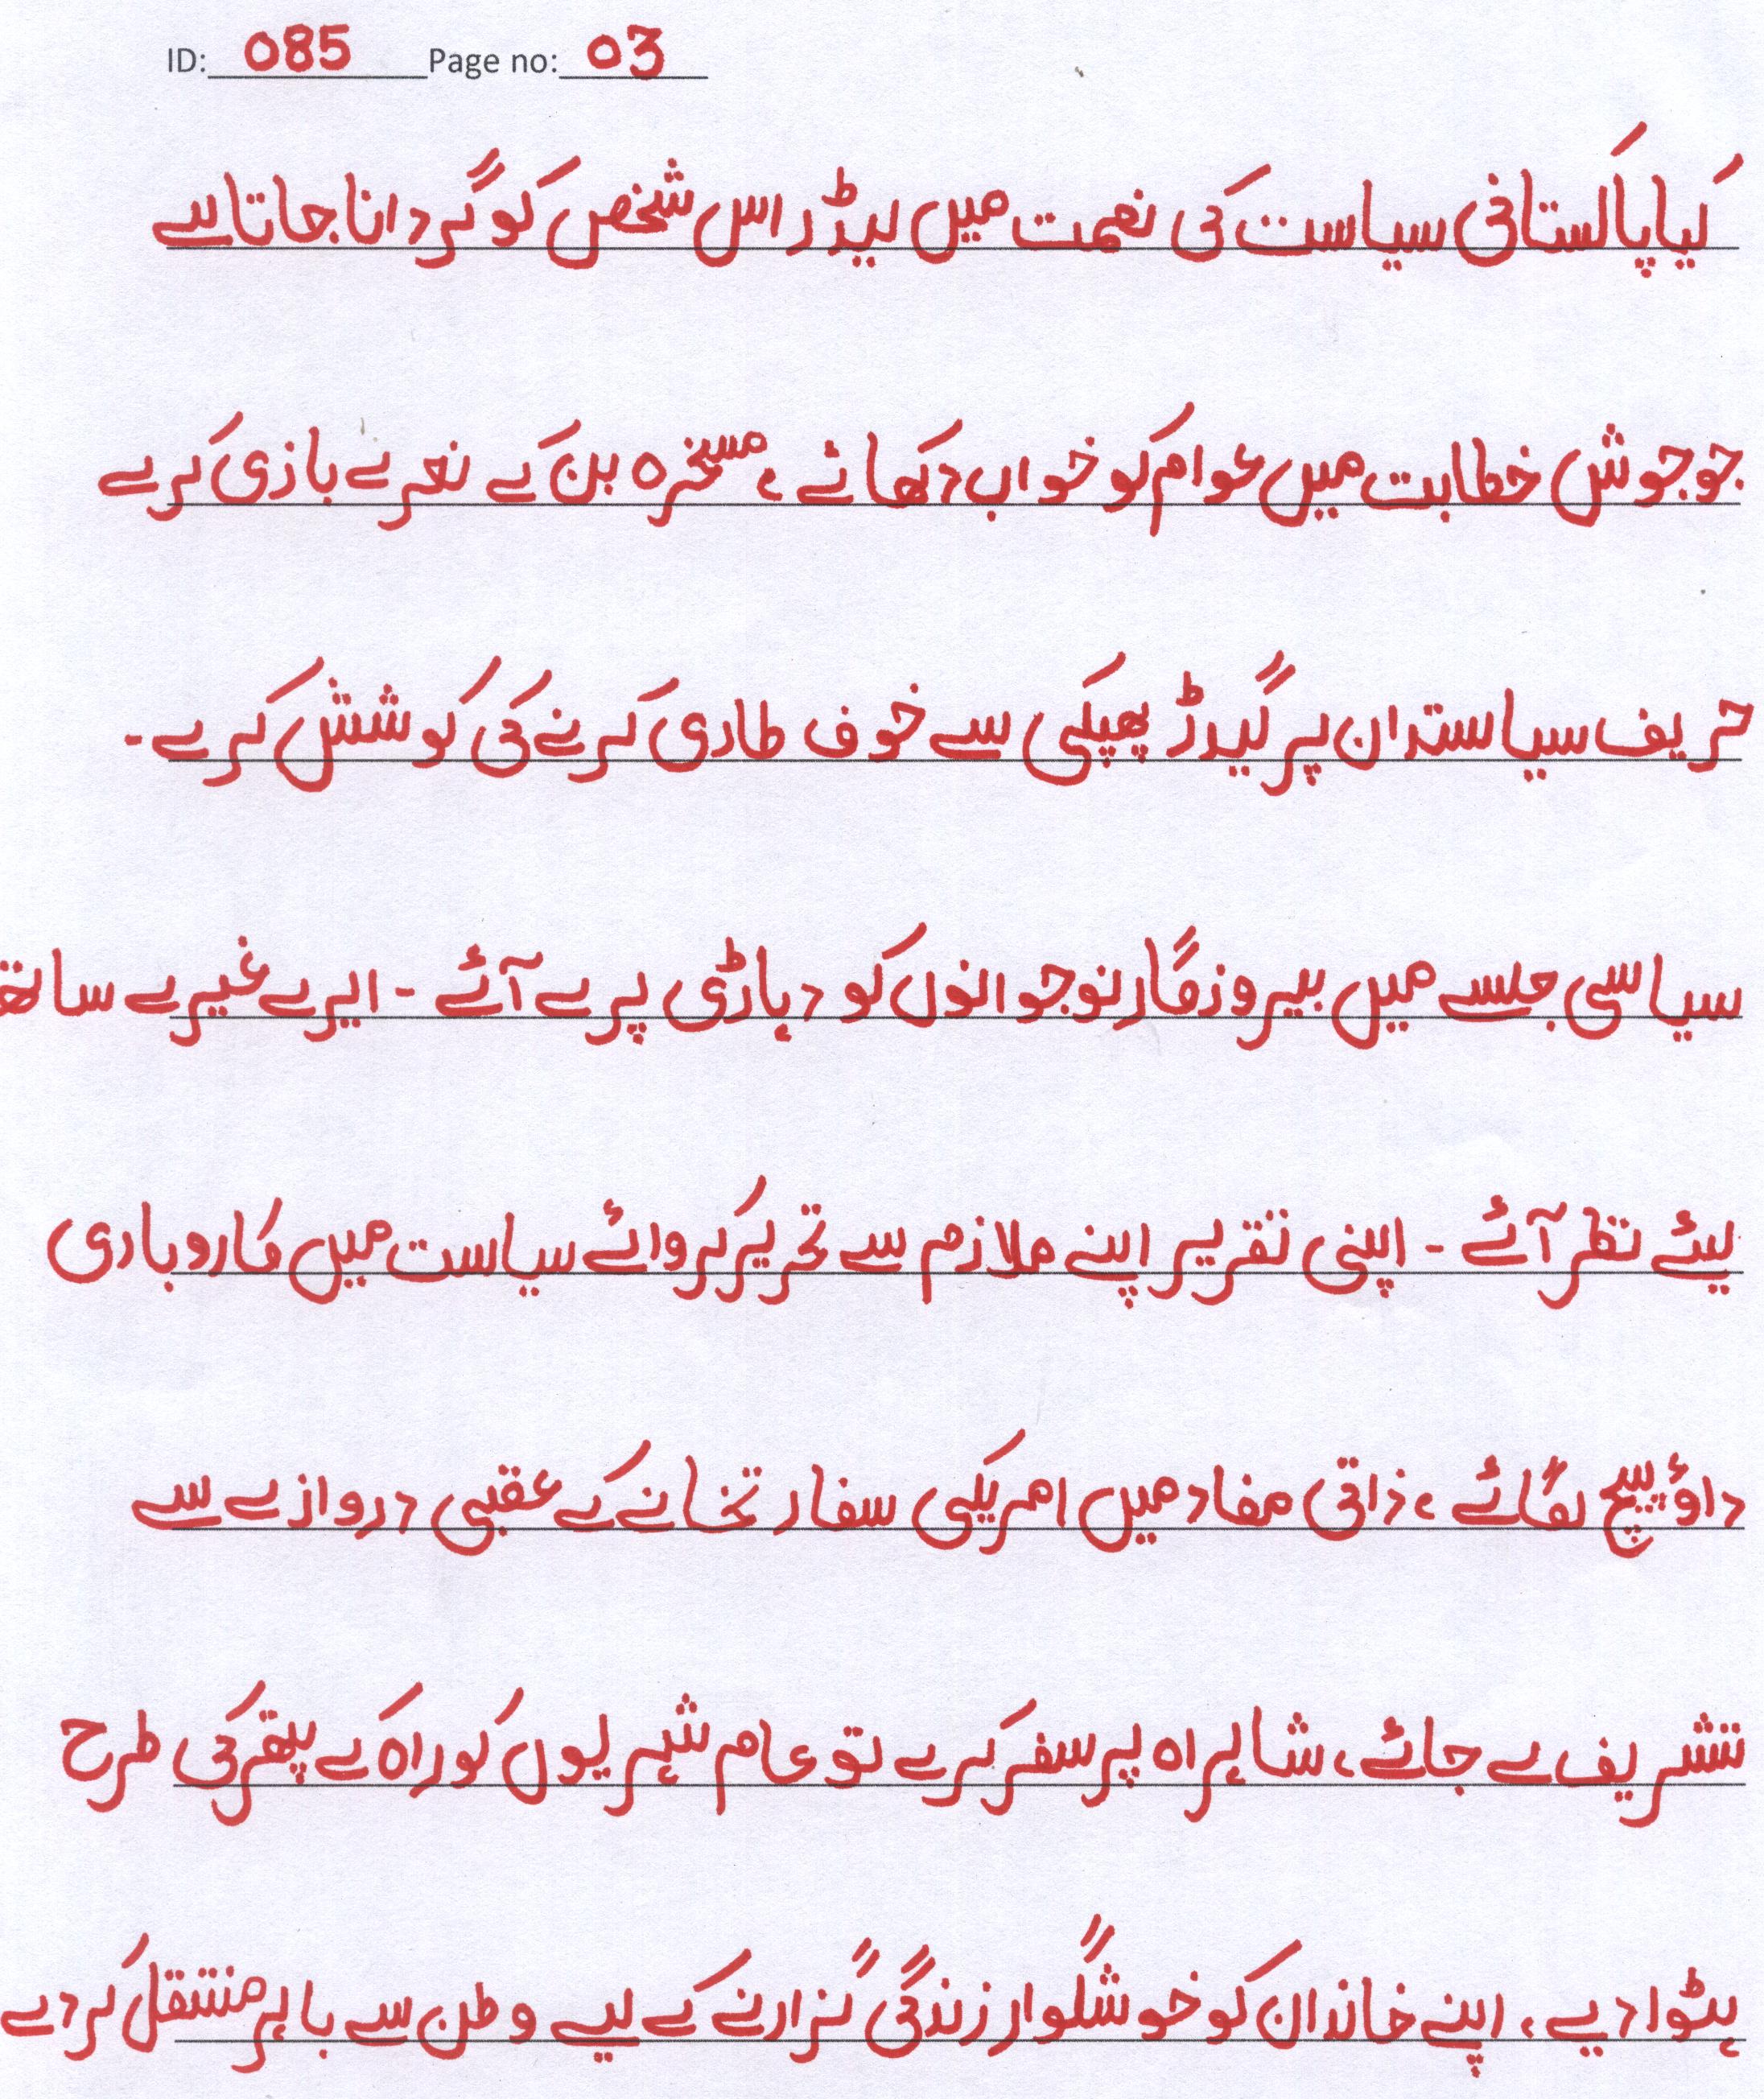 ID: 085 Page no: 03
کیا پاکستانی سیاست کی نعمت میں لیڈر اس شخص کو گردانا جاتا ہے
جو جوش خطابت میں عوام کو خواب دکھائے ، مسخرہ بن کے نعرے بازی کرے
حریف سیاستدان پر گیدڑ بھپکی سے خوف طاری کرنے کی کوشش کرے ۔
سیاسی جلسے میں بیروزگار نوجوانوں کو دہاڑی پر لے آئے ۔ ایرے غیرے ساتھ
لیئے نظر آئے ۔ اپنی تقریر اپنے ملازم سے تحریر کروائے سیاست میں کاروباری
داؤ پیچ لگائے ، ذاتی مفاد میں امریکی سفارتخانے کے عقبی دروازے سے
تشریف لے جائے ، شاہراہ پر سفر کرے تو عام شہریوں کو راہ کے پتھر کی طرح
ہٹوا دیے ، اپنے خاندان کو خوشگوار زندگی گزارنے کے لیے وطن سے باہر منتقل کر دے